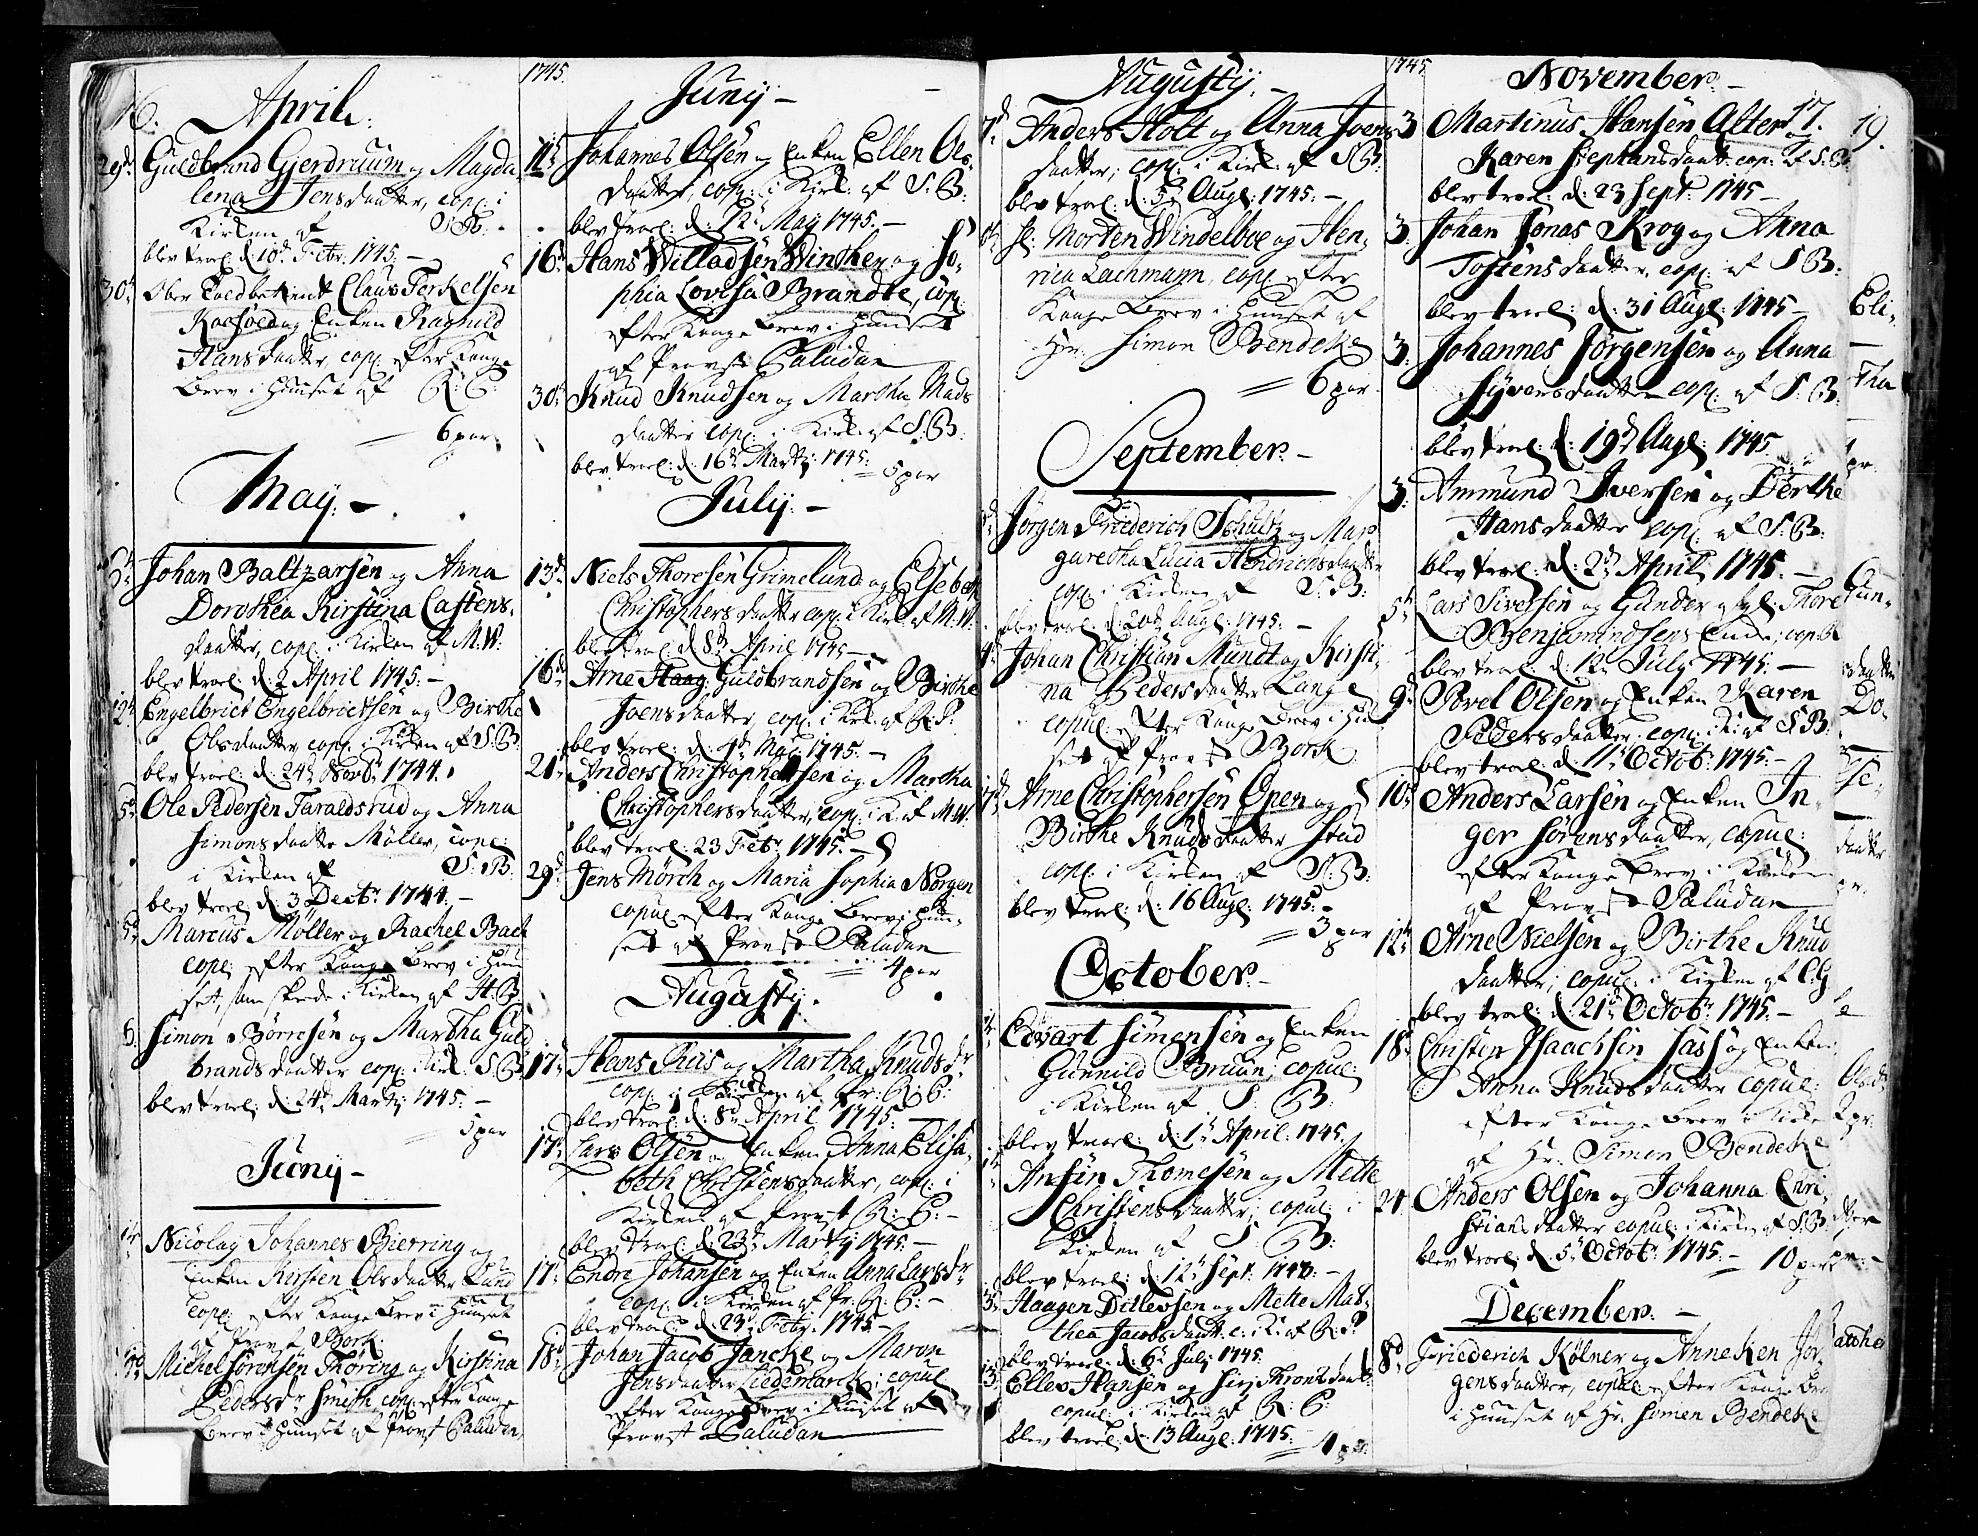 16.
April.
29d. Guldbrand Gjerdruum og Magda-
lena Jensdaatter, copl: i
Kirken af S:B:
blev trol: d. 10d. Febr. 1745. –
30d. Ober Toldbetient Claus Terkelsen
Raasøed og Enken Ragnild
Hansdaatter, cop: efter Konge
Brev i Huuset af R: P:
6 par.
May. –
5d. Johan Baltzarsen og Anna
Dorothea Kirstina Castens-
daatter, copl: i Kirken af M.W.
blev trol: d. 2 April 1745. –
12d. Engelbrict Engelbrictsen og Birthe
Olsdaatter copl: i Kirken af S:B:
blev trol: d. 24d. Novb: 1744.
5d. Ole Pedersen Taraldsrud og Anna
Simonsdaatter Møller, copl:
i Kirken af S:B:
blev trol: d. 3 Decbr 1744. –
Marcus Møller og Rachel Bach
copl: efter Konge Brev i Huu-
set, som skede i Kirken af H.B.
6. Simon Børresen og Martha Guld
brandsdaatter copl: i Kirk: S:B:
blev trol: d. 24d. Martij 1745. –
5 par
Juny –
Nicolay Johannes Bierring og
Enken Kirsten Olsdaatter Lund
copl: efter Konge Brev i Huuset
af Provst Bork.
Michel Sørensen Thøring og Kirstina
Pedersdr Smith, cop: efter Konge
Brev i Huuset af Provst Paludan,
1745.
Juny –
11d. Johannes Olsen og Enken Ellen Ols-
daatter, copl: i Kirk: af S:B:
blev trol: d: 12. May 1745. –
16d. Hans Willadsen Winther og So-
phia Lovisa Brandte, copl:
efter Konge Brev i Huuset
af Provst Paludan
30d. Knud Knudsen og Martha Mads
daatter copl: i Kirk: af S:B:
blev trol: d: 16d. Martij 1745.
5 par
July. –
13d. Niels Thoresen Grimelund og Elsebeth
Christophersdaatter cop: i Kirk: af M.W.
blev trol: d. 8d. April 1745 –
16d. Arne Haag Guldbrandsen og Birthe
Joensdaatter, cop: i Kirk: af R.P.
blev trol: d. 4d. May 1745. –
21d. Anders Christophersen og Martha
Christophersdaatter, cop: i K: af M.W.
blev trol: 23 Febr: 1745. –
29d. Jens Mørch og Maria Sophia Nørgen
copul: efter Konge Brev i Huu-
set af Provst Paludan
4 par
Augusty.
17d. Hans Riis og Martha Knudsdr
copl: i Kirken af Pr: R: P:
blev trol: d. 8d. April 1745.
17d. Lars Olsen og Enken Anna Elisa-
beth Christensdaatter, copl: i
Kirken af Provst R: P: –
blev trol: d: 23d. Marty 1745. –
17d. Endre Johansen og Enken Anna Larsdr
copl: i Kirken af Pr: R: P: –
blev trol: d: 23d. Febr: 1745 –
18d. Johan Jacob Jancke og Maren
Jensdaatter Liedemarck; copul
efter Konge Brev i Huuset af
Provst Paludan
Augusty. –
7d. Anders Holt og Anna Joens
daatter, cop: i Kirk: af S:B:
blev trol: d. 5d. Augl: 1745. –
Sr: Morten Windelboe og Hen-
rica Lachmann, copl: efter
Konge Brev i Huuset af
Hr. Simon Bendeke
6 par
September. –
Jørgen Friederich Schultz og Mar
garetha Lucia Hendrichsdaatter
copl: i Kirken af S:B:
blev trol: d. 20d. Augl: 1745. –
Johan Christian Mundt og Kirsti-
na Pedersdaatter Lange
copul: efter Konge Brev i Huu
set af Provst Bork
Arne Christophersen Øpen og
Birthe Knudsdaatter Stud
copl: i Kirken af S:B:
blev trol: d: 16 Augl: 1745. –
3 par
October. –
Edvart Simensen og Enken
Gunnild Bruun; copul:
i Kirken af S: B:
blev trol: d: 1d. April. 1745.
Ansten Thomesen og Mette
Christensdaatter; copul: i
Kirken af S: B:
blev trol: d. 12d. Sept: 1745. –
3. Haagen Ditlevsen og Mette Mat-
thea Jacobsdaatt: c: i K: af R.P.
blev trol: d. 6d. July 1745.
3. Elles Hansen og Siri Thronsdaatt:
copul: i Kirken af R: P:
blev trol: d. 13 Augl: 1745. –
4 par
1745
November. –
17.
3 Martinus Hansen Alter og
Karen Stephansdaatt: cop: af S:B:
blev trol: d: 23 Sept: 1745 –
3: Johan Jonas Krog og Anna
Tostensdaatter, copl: af S:B:
blev trol: d. 31 Augl: 1745 –
3: Johannes Jørgensen og Anna
Syversdaatter copl: af S:B:
blev trol: d: 19d. Augl: 1745
3: Ammund Iversen og Berthe
Hansdaatter copl: af S:B:
blev trol: d. 2d. April 1745. –
5d. Lars Siversen og Gunder afgl: Thore
Benjamindsens Enke; cop:
blev trol: d: 12 July 1745. –
9d. Povel Olsen og Enken Karen
Pedersdaatter, copl: i K: af S:B:
blev trol: d: 11d. Octob: 1745. –
10d. Anders Larsen og Enken In-
ger Sørensdaatter, copul:
efter Konge Brev i Kirken
af Provst Paludan
12d. Arne Nielsen og Birthe Knud
daatter; copul: i Kirken af C.G
blev trol: d. 21d. Octobr 1745. –
18d. Christen Isaachsen Sass og Enken
Anna Knudsdaatter copul:
efter Konge Brev i Kirken
af Hr: Simen Bendeke
24 Anders Olsen og Johanna Chri-
stiansdaatter copul: i Kirken af S:B:
blev trol: d. 5d. Octob: 1745. –
10 par
December. –
8d Friederich Kølner og Anneken Jør-
gensdaatter, copul: efter Konge Brev
i Huuset af Hr. Simen Bendeke
19.
Eli-
Tha
Gun-
daatter
Do-
daatter